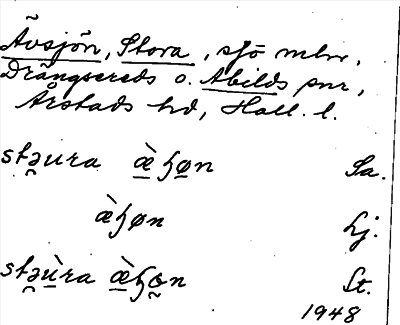 Ävsjön, Stora, sjö mlm.
Drängsereds o. Abilds snr,
Årstads hd, Hall. l.
stəura æ̀ɧøn Sa.
æ̀ɧøn Lj.
stəùra æ̀ɧøn St.
1948